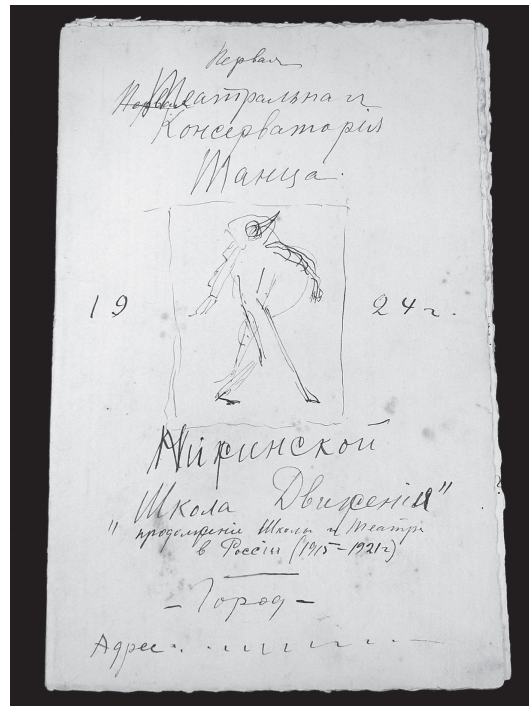 Первая
Театральная
Консерваторія
Танца.
19 24 г.
Нижинской
"Школа Движенія"
продолженіе Школы и Театра
в Россіи (1915-1921г)
- Город -
Адрес. . . . . . .